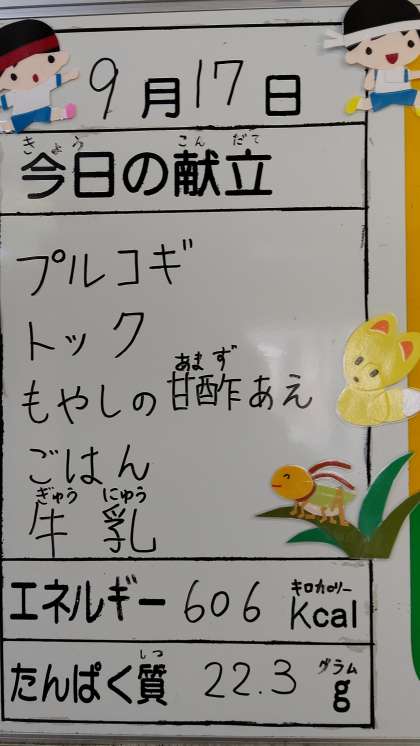 9月17日
きょう こんだて
今日の献立
プルコギ
トック
あまず
もやしの甘酢あえ
ごはん
ぎゅう にゅう
牛乳
キロカロリー
エネルギー 606 kcal
しつ グラム
たんぱく質 22.3 g